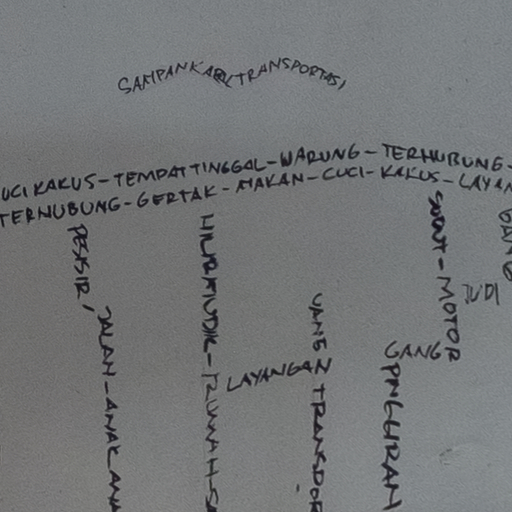 SAMPAN KARU/TRANSPORTASI
UCI KAKUS-TEMPAT TINGGAL-WARUNG-TERHUBUNG-
TERHUBUNG-GERTAK-MAKAN-CUCI-KAKUS-LAYAN
PESISIR/JALAN-ANAK ANA
HILIR MUDIK-RUMAH-SA
UANG TRANSPOR
LAYANGAN
PINGGIRAN
GANG
SUDUT-MOTOR
JUDI